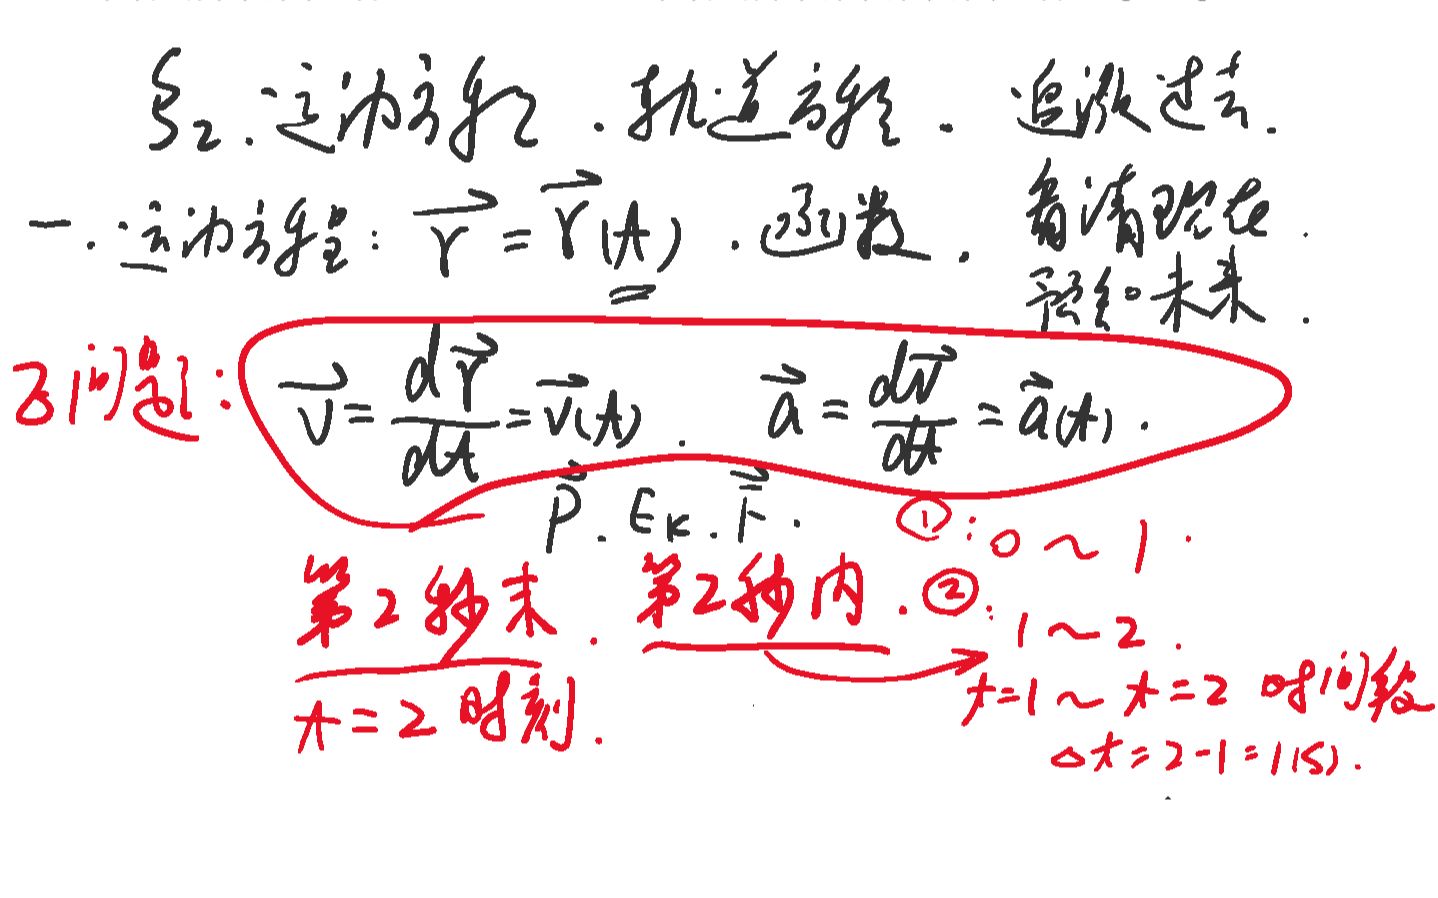 §2.运动方程.轨道方程.追溯过去.
一.运动方程: r⃗ = r⃗(t).函数. 看清现在.
预知未来.
问题: v⃗ = dr⃗/dt = v⃗(t). a⃗ = dv⃗/dt = a⃗(t).
P⃗. Eₖ. F⃗. ①: 0 ~ 1.
第2秒末. 第2秒内. ②: 1 ~ 2.
t = 2 时刻. t=1 ~ t=2 时间段
Δt = 2-1 = 1(s).